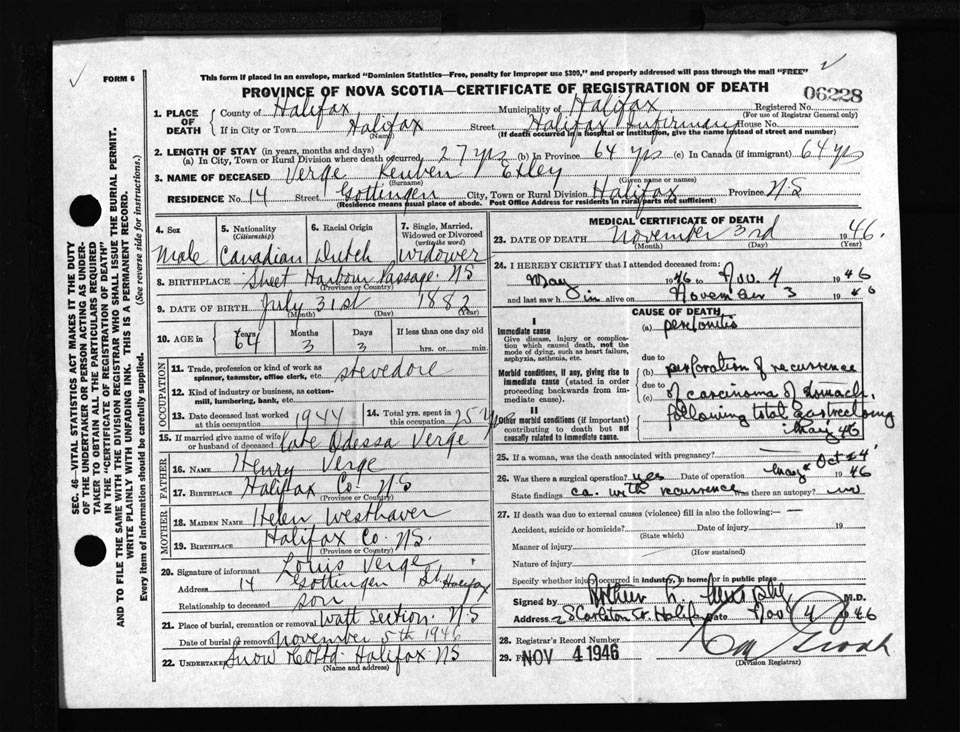 FORM 6
This form if placed in an envelope, marked "Dominion Statistics—Free, penalty for improper use $300," and properly addressed will pass through the mail "FREE"
PROVINCE OF NOVA SCOTIA—CERTIFICATE OF REGISTRATION OF DEATH
06228
1. PLACE OF DEATH
County of Halifax Municipality of Halifax Registered No.
(For use of Registrar General only)
If in City or Town Halifax Street Halifax Infirmary House No.
(Name) (If death occurred in a hospital or institution, give the name instead of street and number)
2. LENGTH OF STAY (in years, months and days)
(a) In City, Town or Rural Division where death occurred 27 yrs (b) In Province 64 yrs (c) In Canada (if immigrant) 64 yrs
3. NAME OF DECEASED Verge Reuben Exley
(Surname) (Given name or names)
RESIDENCE No. 14 Street Gottingen City, Town or Rural Division Halifax Province N S
(Residence means usual place of abode. Post Office Address for residents in rural parts not sufficient)
4. Sex
Male
5. Nationality (Citizenship)
Canadian
6. Racial Origin
Dutch
7. Single, Married, Widowed or Divorced (write the word)
widower
8. BIRTHPLACE Sheet Harbour Passage NS
(Province or Country)
9. DATE OF BIRTH July 31st 1882
(Month) (Day) (Year)
10. AGE in Years Months Days If less than one day old
64 3 3 hrs. or min.
OCCUPATION
11. Trade, profession or kind of work as spinner, teamster, office clerk, etc. stevedore
12. Kind of industry or business, as cotton-mill, lumbering, bank, etc.
13. Date deceased last worked at this occupation 1944
14. Total yrs. spent in this occupation 25 yrs
15. If married give name of wife or husband of deceased late Odessa Verge
FATHER
16. NAME Henry Verge
17. BIRTHPLACE Halifax Co NS
(Province or Country)
MOTHER
18. MAIDEN NAME Helen Westhaver
19. BIRTHPLACE Halifax Co. NS.
(Province or Country)
20. Signature of informant Louis Verge
Address 14 Gottingen St Halifax
Relationship to deceased son
21. Place of burial, cremation or removal Watt Section. N S
Date of burial or removal November 5th 1946
22. UNDERTAKER Snow Co Ltd. Halifax NS
(Name and address)
MEDICAL CERTIFICATE OF DEATH
23. DATE OF DEATH November 3rd 1946.
(Month) (Day) (Year)
24. I HEREBY CERTIFY that I attended deceased from
May 1946 to Nov. 4 1946
and last saw him alive on November 3 1946
CAUSE OF DEATH
I
Immediate cause
Give disease, injury or complication which caused death, not the mode of dying, such as heart failure, asphyxia, asthenia, etc.
(a) peritonitis
due to
Morbid conditions, if any, giving rise to immediate cause (stated in order proceeding backwards from immediate).
(b) perforation of recurrence
due to
(c) of carcinoma of stomach
II
Other morbid conditions (if important) contributing to death but not causally related to immediate cause.
following total
May 46
25. If a woman, was the death associated with pregnancy?
26. Was there a surgical operation? yes Date of operation May & Oct 24 1946
State findings ca. with recurrence Was there an autopsy? no
27. If death was due to external causes (violence) fill in also the following:—
Accident, suicide or homicide? Date of injury 19
(State which)
Manner of injury
(How sustained)
Nature of injury
Specify whether injury occurred in industry, in home or in public place
Signed by Arthur L. M.D.
Address Carleton St Halifax Date Nov 4 1946
28. Registrar's Record Number
29. F NOV 4 1946
(Division Registrar)
SEC. 46—VITAL STATISTICS ACT MAKES IT THE DUTY OF THE UNDERTAKER OR PERSON ACTING AS UNDERTAKER TO OBTAIN ALL THE PARTICULARS REQUIRED IN THE "CERTIFICATE OF REGISTRATION OF DEATH"
AND TO FILE THE SAME WITH THE DIVISION REGISTRAR WHO SHALL ISSUE THE BURIAL PERMIT.
WRITE PLAINLY WITH UNFADING INK. THIS IS A PERMANENT RECORD.
Every item of information should be carefully supplied. (See reverse side for instructions.)